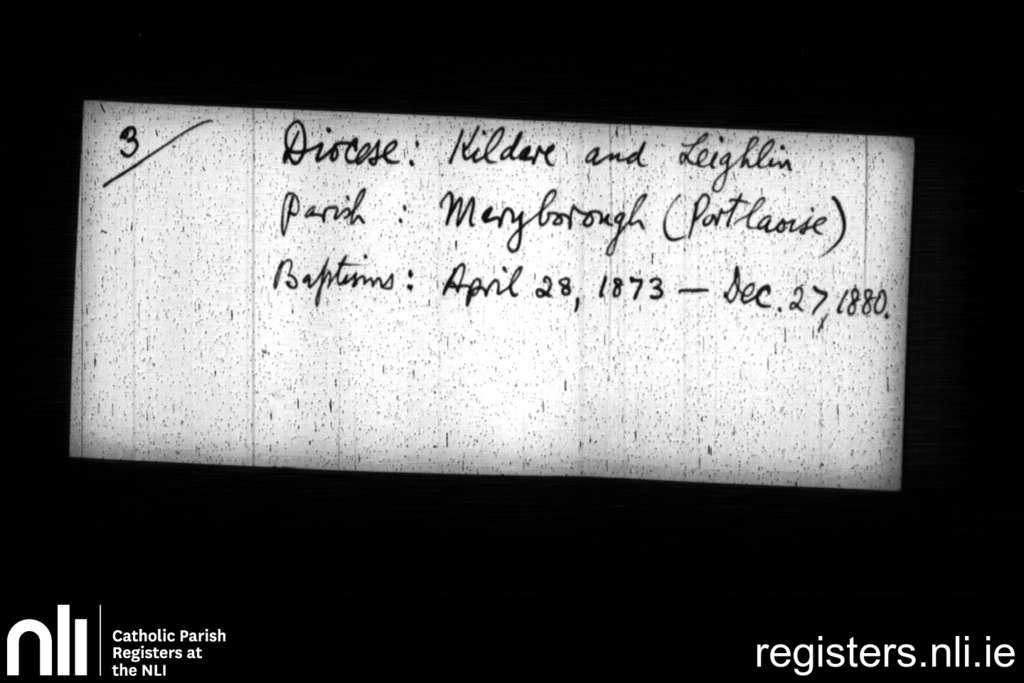 3/
Diocese: Kildare and Leighlin
Parish : Maryborough (Portlaoise)
Baptisms: April 28, 1873 – Dec. 27, 1880.
nli
Catholic Parish
Registers at
the NLI
registers.nli.ie